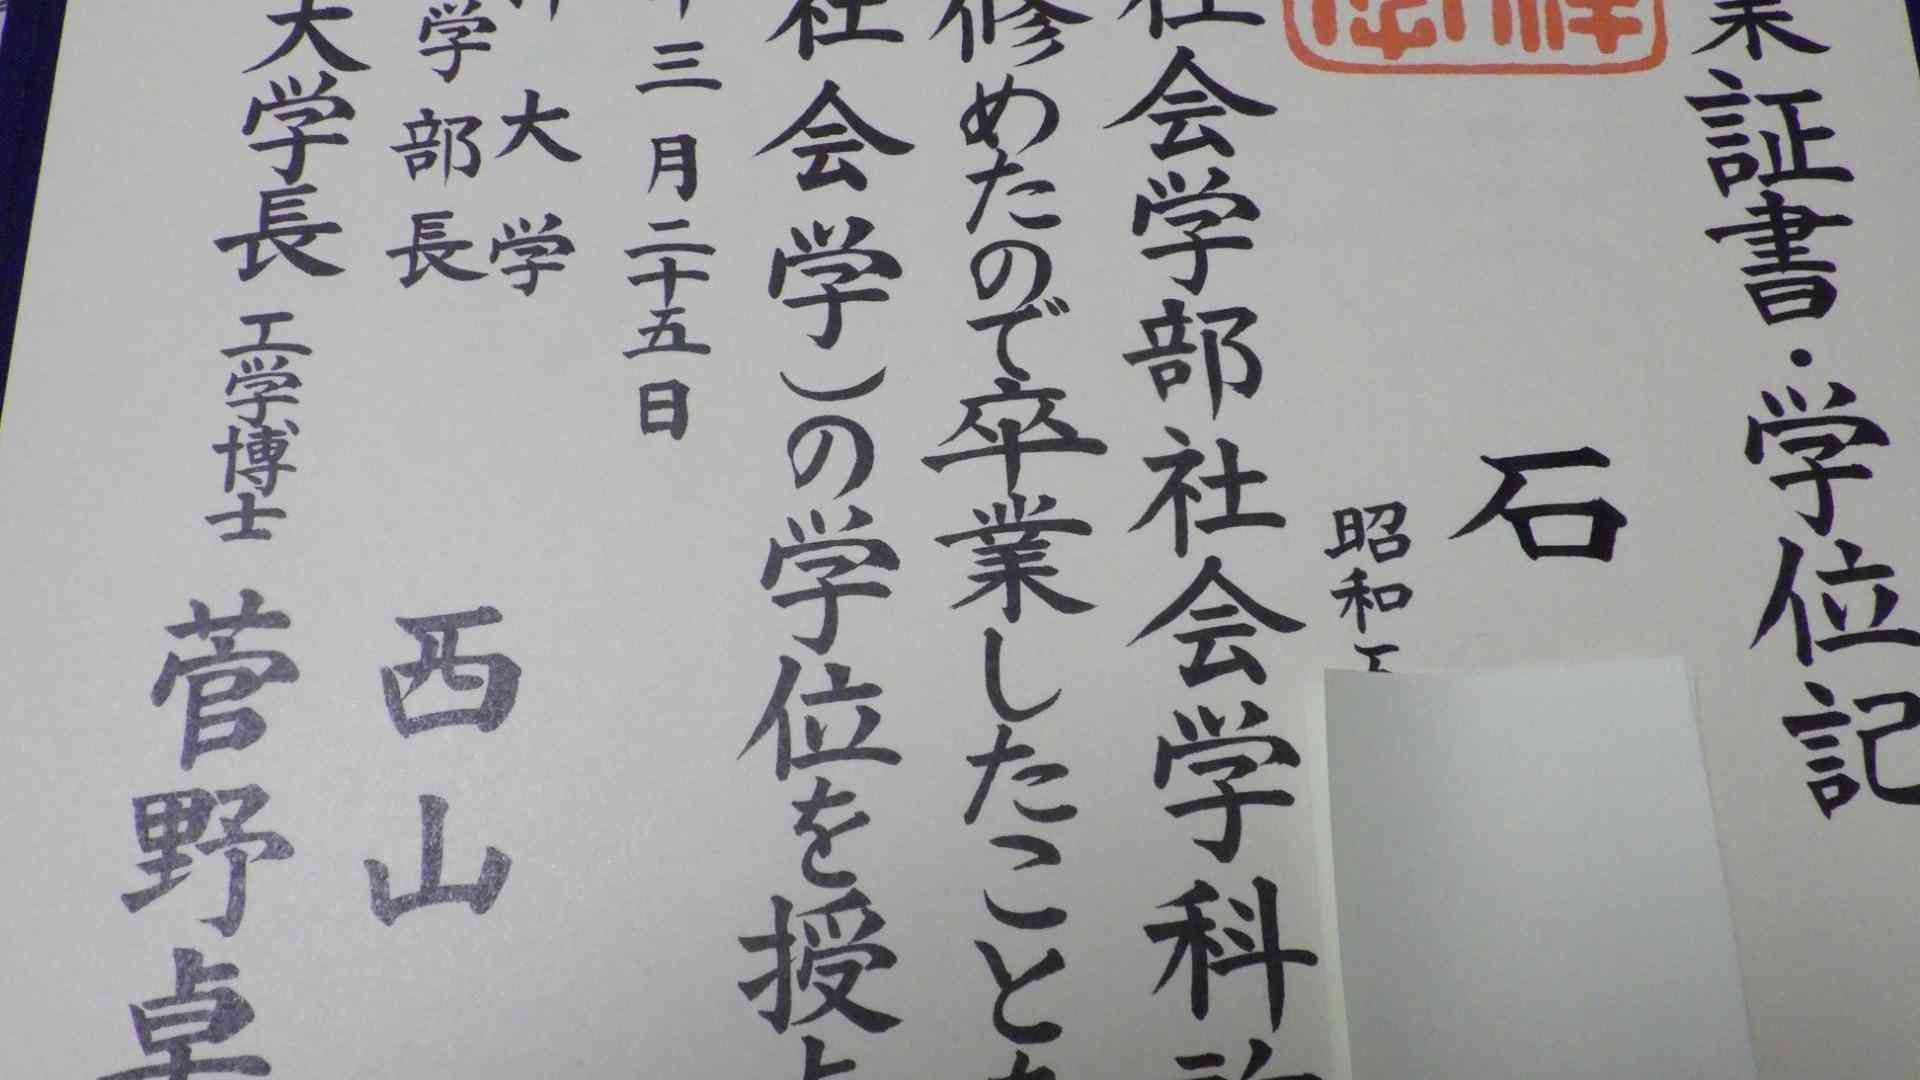 業証書・学位記
石
昭和
社会学部社会学科
修めたので卒業したこと
社会学）の学位を授
三月二十五日
大学
学部長
西山
大学長 工学博士 菅野卓